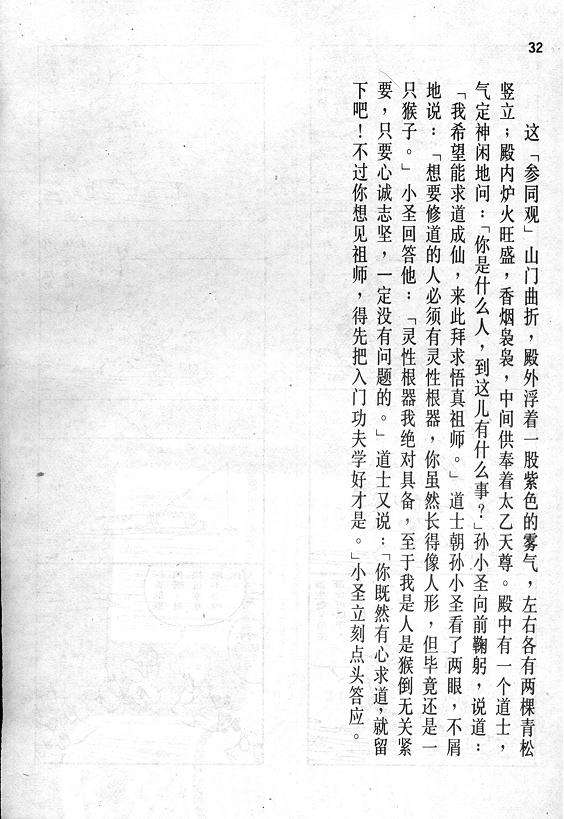 32
这「参同观」山门曲折，殿外浮着一股紫色的雾气，左右各有两棵青松
竖立；殿内炉火旺盛，香烟袅袅，中间供奉着太乙天尊。殿中有一个道士，
气定神闲地问：「你是什么人，到这儿有什么事？」孙小圣向前鞠躬，说道：
「我希望能求道成仙，来此拜求悟真祖师。」道士朝孙小圣看了两眼，不屑
地说：「想要修道的人必须有灵性根器，你虽然长得像人形，但毕竟还是一
只猴子。」小圣回答他：「灵性根器我绝对具备，至于我是人是猴倒无关紧
要，只要心诚志坚，一定没有问题的。」道士又说：「你既然有心求道，就留
下吧！不过你想见祖师，得先把入门功夫学好才是。」小圣立刻点头答应。